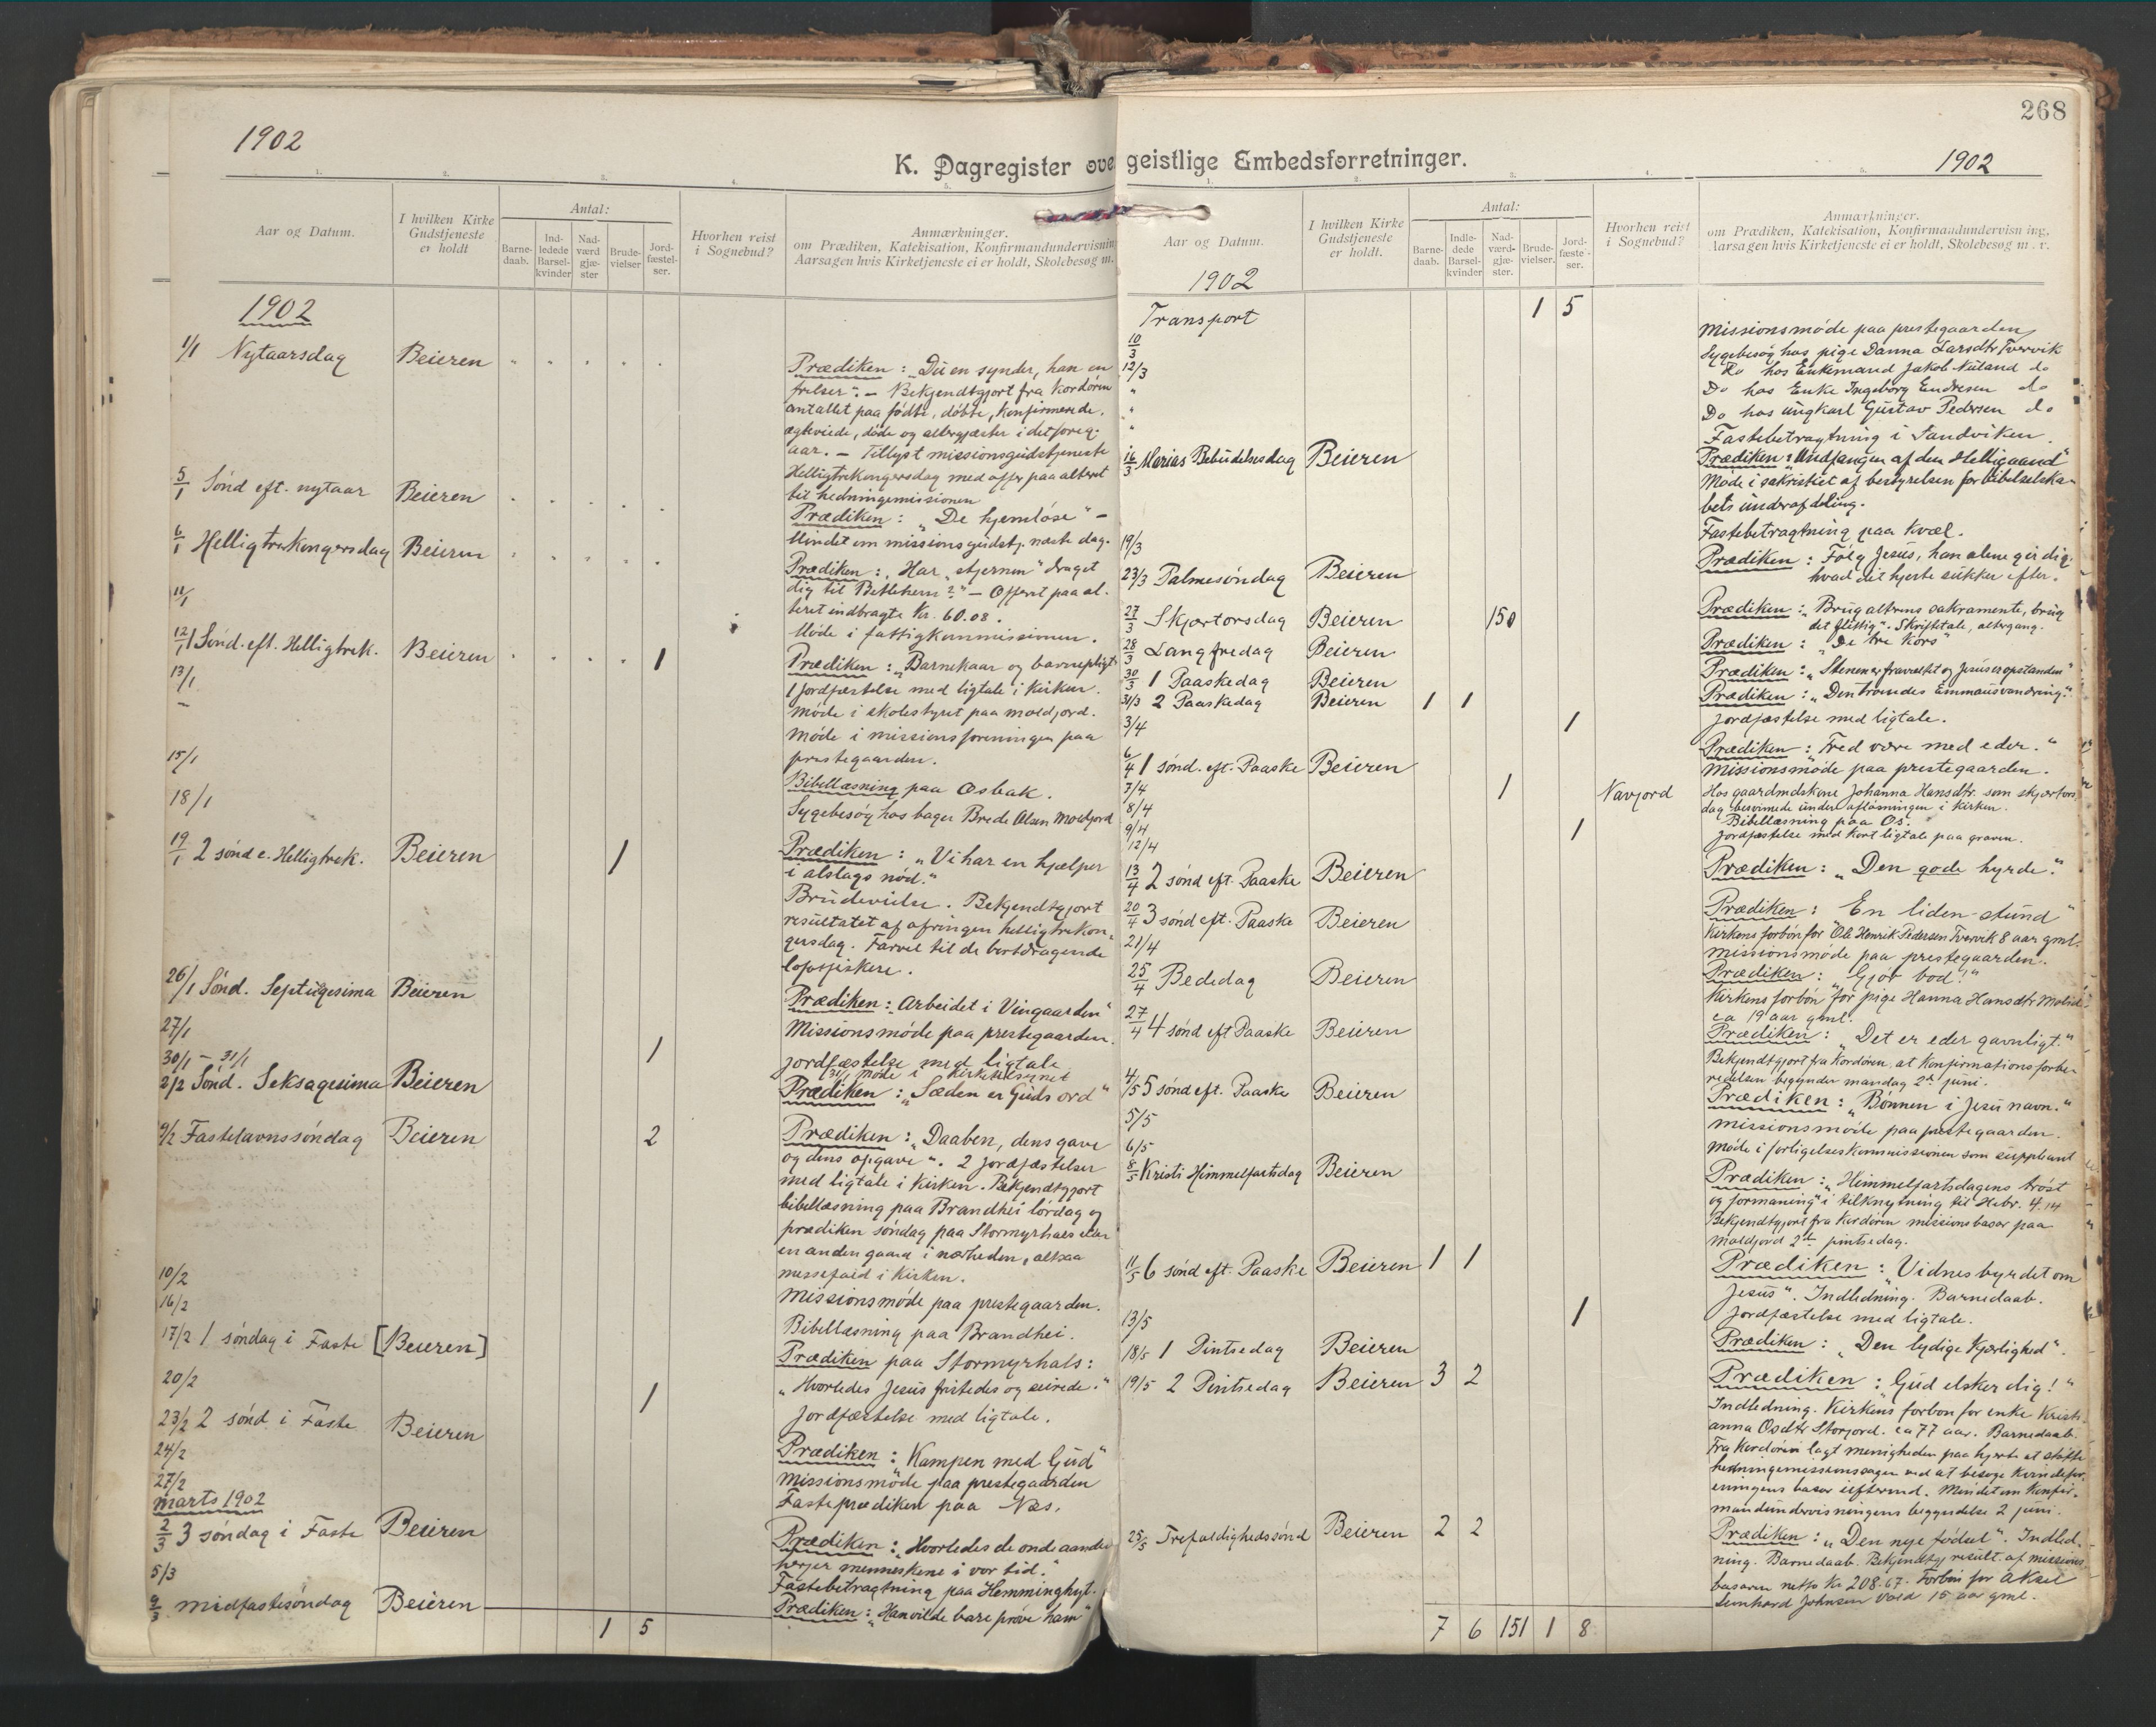 268
1902
K. Dagregister over geistlige Embedsforretninger.
1902
Aar og Datum.
I hvilken Kirke Gudstjeneste er holdt
Antal:
Barne-daab.
Ind-ledede Barsel-kvinder
Nad-værd gjæ-ster
Brude-vielser
Jord-fæstel-ser.
Hvorhen reist i Sognebud?
Anmærkninger.
om Prædiken, Katekisation, Konfirmandundervisning
Aarsagen hvis Kirketjeneste ei er holdt, Skolebesøg m.
1902
1/1 Nytaarsdag Beieren
Prædiken: „Du en synder, han en
frelser". – Bekjendtgjort fra Kordøren
antallet paa fødte, døbte, konfirmerede,
ægteviede, døde og altergjæster i det foreg.
aar. – Tillyst missionsgudstjeneste
Helligtrekongersdag med offer paa alteret
til hedningemissionen
5/1 Sønd eft. nytaar Beieren
Prædiken: „De hjemløse" –
Mindet om missionsgudstj. næste dag.
6/1 Helligtrekongersdag Beieren
Prædiken: „Har „stjernen" draget
dig til Betlehem?" – Offeret paa al-
teret indbragte Kr. 60.08.
11/1
Møde i fattigkommissionen.
12/1 1 Sønd. eft. Helligtrek. Beieren 1
Prædiken: „Barnekaar og barnepligt"
1 jordfæstelse med ligtale i Kirken.
13/1
Møde i skolestyret paa moldjord.
–
Møde i missionsforeningen paa
prestegaarden.
15/1
Bibellæsning paa Osbak.
18/1
Sygebesøg hos bager Brede Olsen Moldjord
19/1 2 sønd e. Helligtrek. Beieren 1
Prædiken: „Vi har en hjælper
i alslags nød."
Brudevielse. Bekjendtgjort
resultatet af ofringen helligtrekon-
gersdag. Farvel til de bortdragende
lofotfiskere.
26/1 Sønd. Septuagesima Beieren
Prædiken: „Arbeidet i Vingaarden"
27/1
Missionsmøde paa prestegaarden.
30/1 – 31/1 1
jordfæstelse med ligtale
31/1 møde i Kirketilsynet
2/2 Sønd. Seksagesima Beieren
Prædiken: „Sæden er Guds ord"
9/2 Fastelavnssøndag Beieren 2
Prædiken: „Daaben, dens gave
og dens opgave". 2 jordfæstelser
med ligtale i Kirken. Bekjendtgjort
bibellæsning paa Brandhei lørdag og
prædiken søndag paa Stormyrhals eller
en anden gaard i nærheden, altsaa
messefald i Kirken.
10/2
Missionsmøde paa prestegaarden.
16/2
Bibellæsning paa Brandhei.
17/2 1 søndag i Faste [Beieren]
Prædiken paa Stormyrhals:
„Hvorledes Jesus fristedes og seirede."
20/2 1
Jordfæstelse med ligtale.
23/2 2 sønd i Faste Beieren
Prædiken: „Kampen med Gud"
24/2
Missionsmøde paa prestegaarden
27/2
Fasteprædiken paa Nes.
marts 1902
2/3 3 søndag i Faste Beieren
Prædiken: „Hvorledes de onde aander
herjer menneskene i vor tid."
5/3
Fastebetragtning paa Hemminghyt.
9/3 midfastesøndag Beieren
Prædiken: „Han vilde bare prøve ham"
1 5
1902
Aar og Datum.
I hvilken Kirke Gudstjeneste er holdt.
Antal:
Barne-daab.
Indle-dede Barsel-kvinder
Nad-værd-gjæ-ster.
Brude-vielser.
Jord-fæste-ser.
Hvorhen reist i Sognebud?
Anmærkninger.
om Prædiken, Katekisation, Konfirmandundervisning,
Aarsagen hvis Kirketjeneste ei er holdt, Skolebesøg m. v.
1902
Transport 1 5
10/3
Missionsmøde paa prestegaarden
12/3
Sygebesøg hos pige Danna Larsdtr Tvervik
" Do hos Enkemand Jakob Nuland do
" Do hos Enke Ingeborg Endresen do
" Do hos ungkarl Gustav Pedersen do
Fastebetragtning i Sandviken.
16/3 Marias Bebudelsesdag Beieren
Prædiken: „Undfangen af den Helligaand"
Møde i sakristiet af bestyrelsen for bibelselska-
bets underafdeling.
19/3
Fastebetragtning paa Kvæl.
23/3 Palmesøndag Beieren
Prædiken: Følg Jesus, han alene gir dig
hvad dit hjerte sukker efter.
27/3 Skjærtorsdag Beieren 150
Prædiken: „Brug alterens sakramente, brug
det flittig". Skriftetale, altergang.
28/3 Langfredag Beieren
Prædiken: „De tre Kors"
30/3 1 Paaskedag Beieren
Prædiken: „Stenen er fravæltet og Jesus er opstanden"
31/3 2 Paaskedag Beieren 1 1
Prædiken: „Den troendes Emmausvandring."
3/4 1
Jordfæstelse med ligtale.
6/4 1 sønd. eft. Paaske Beieren
Prædiken: „Fred være med eder."
7/4
Missionsmøde paa prestegaarden.
8/4 1 Navjord
Hos gaardmdskone Johanna Hansdtr. som skjærtors-
dag besvimede under afløsningen i Kirken.
9/4
Bibellæsning paa Os.
12/4 1
Jordfæstelse med kort ligtale paa graven.
13/4 2 sønd eft. Paaske Beieren
Prædiken: „Den gode hyrde."
20/4 3 sønd eft. Paaske Beieren
Prædiken: En liden stund"
Kirkens forbøn for Ole Henrik Pedersen Tvervik 8 aar gml.
21/4
Missionsmøde paa prestegaarden.
25/4 Bededag Beieren
Prædiken: „Gjør bod!"
Kirkens forbøn for pige Hanna Hansdtr
ca 19 aar gml.
27/4 4 sønd eft Paaske Beieren
Prædiken: „Det er eder gavnligt."
Bekjendtgjort fra Kordøren, at Konfirmationsforbe-
redelsen begynder mandag 2den juni.
4/5 5 sønd eft. Paaske Beieren
Prædiken: „Bønnen i Jesu navn."
5/5
Missionsmøde paa prestegaarden.
6/5
Møde i forligelseskommissionen som suppleant
8/5 Kristi Himmelfartsdag Beieren
Prædiken: „Himmelfartsdagens trøst
og formaning" i tilknytning til Hebr. 4.14
Bekjendtgjort fra Kordøren missionsbasar paa
Moldjord 2den pintsedag.
11/5 6 sønd eft. Paaske Beieren 1 1
Prædiken: „Vidnesbyrdet om
Jesus". Indledning. Barnedaab.
13/5 1
Jordfæstelse med ligtale.
18/5 1 Pintsedag Beieren
Prædiken: „Den lydige kjærlighed".
19/5 2 Pintsedag Beieren 3 2
Prædiken: „Gud elsker dig!"
Indledning. Kirkens forbøn for enke Kristi-
anna Osdtr Storjord. ca 77 aar. Barnedaab.
Fra Kordøren lagt menigheden paa hjerte at støtte
hedningemissionssagen ved at besøge Kvindefor-
eningens basar. Mindet om Konfir-
mandundervisningens begyndelse 2 juni.
25/5 Trefoldighedssønd Beieren 2 2
Prædiken: „Den nye fødsel". Indled-
ning. Barnedaab. Bekjendtgj result. af missions-
basaren netto Kr 208.67. Forbøn for Aksel
Leonhard Johnsen Vold 15 aar gml.
7 6 151 1 8